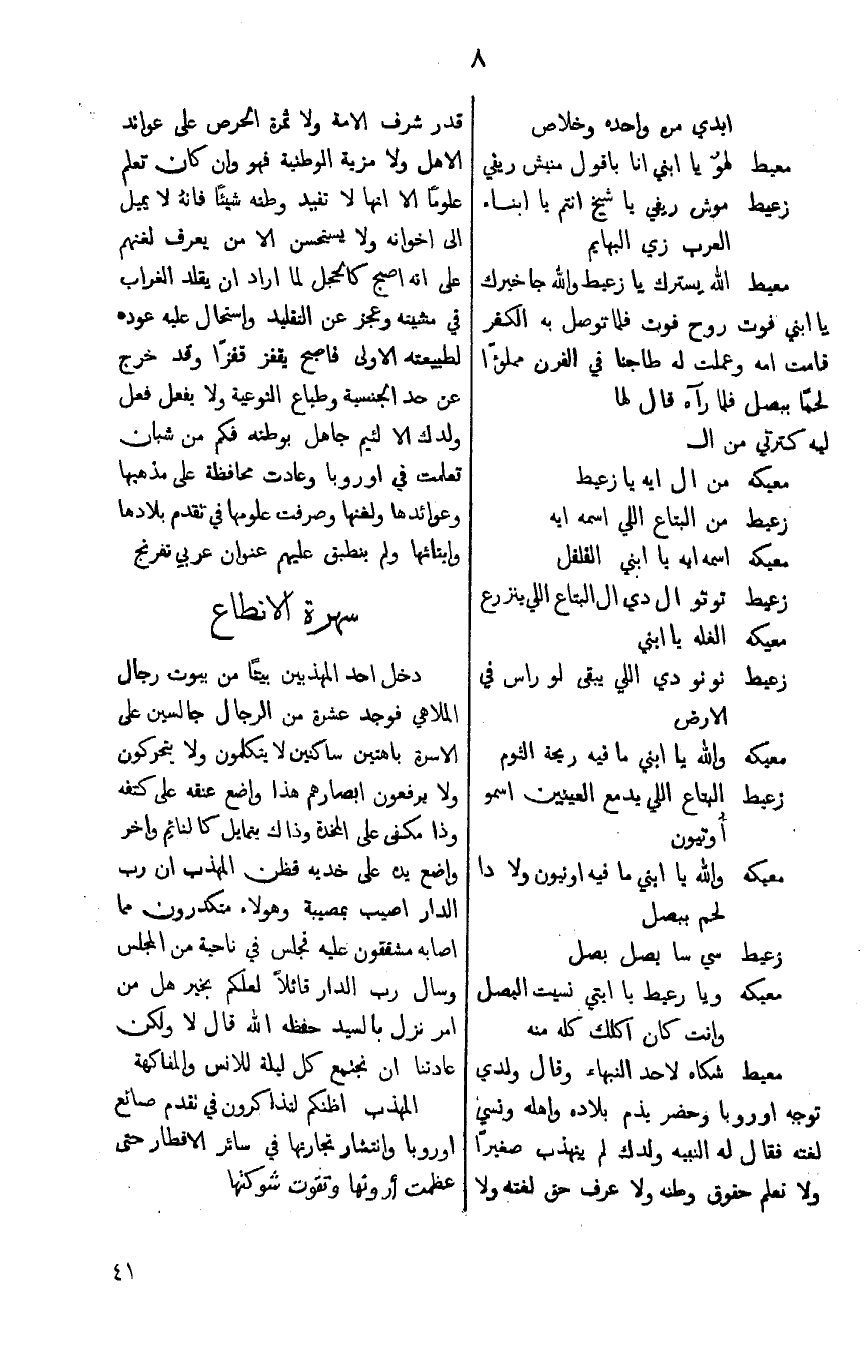 ٨
ابدي مره واحده وخلاص
معيط لهوّ يا ابني انا باقول منبش ريفي
زعيط موش ريفي يا شيخ انتم يا ابناء
العرب زي البهايم
معيط الله يسترك يا زعيط والله جا خبرك
يا ابني فوت روح فوت فلما توصل به الكفر
قامت امه وعملت له طاجنا في الفرن مملوءًا
لحمًا ببصل فلما رآه قال لها
ليه كترتي من الـ
معيكه من ال ايه يا زعيط
زعيط من البتاع اللي اسمه ايه
معيكه اسمه ايه يا ابني الفلفل
زعيط نونو ال دي ال البتاع اللي ينزرع
معيكه الغله يا ابني
زعيط نونو دي اللي يبقى لو راس في
الارض
معيكه والله يا ابني ما فيه ريحة الثوم
زعيط البتاع اللي يدمع العينين اسمو
أونيون
معيكه والله يا ابني ما فيه اونيون ولا دا
لحم ببصل
زعيط سي سا بصل بصل
معيكه ويا زعيط يا ابتي نسيت البصل
وانت كان اكلك كله منه
معيط شكاه لاحد النبهاء وقال ولدي
توجه اوروبا وحضر يذم بلاده واهله ونسي
لغته فقال له النبيه ولدك لم يتهذب صغيرًا
ولا تعلم حقوق وطنه ولا عرف حق لغته ولا
قدر شرف الامة ولا ثمرة الحرص على عوائد
الاهل ولا مزية الوطنية فهو وان كان تعلم
علومًا الا انها لا تفيد وطنه شيئًا فانه لا يميل
الى اخوانه ولا يستحسن الا من يعرف لغتهم
على انه اصبح كالحجل لما اراد ان يقلد الغراب
في مشيته وعجز عن التقليد واستحال عليه عوده
لطبيعته الاولى فاصبح يقفز قفزًا وقد خرج
عن حد الجنسية وطباع النوعية ولا يفعل فعل
ولدك الا لئيم جاهل بوطنه فكم من شبان
تعلمت في اوروبا وعادت محافظة على مذهبها
وعوائدها ولغتها وصرفت علومها في تقدم بلادها
وابنائها ولم ينطبق عليهم عنوان عربي تفرنج
سهرة الانطاع
دخل احد المهذبين بيتًا من بيوت رجال
الملاهي فوجد عشرة من الرجال جالسين على
الاسرة باهتين ساكنين لا يتكلمون ولا يتحركون
ولا يرفعون ابصارهم هذا واضع عنقه على كتفه
وذا مكفى على المخدة وذاك يتمايل كالنائم واخر
واضع يده على خديه فظن المهذب ان رب
الدار اصيب بمصيبة وهولاء متكدرون مما
اصابه مشفقون عليه فجلس في ناحية من المجلس
وسال رب الدار قائلاً لعلكم بخير هل من
امر نزل بالسيد حفظه الله قال لا ولكن
عادتنا ان نجتمع كل ليلة للانس والمفاكهة
المهذب اظنكم لتذاكرون في تقدم صنائع
اوروبا وانتشار تجارتها في سائر الاقطار حتى
عظمت ثروتها وتقوت شوكتها
٤١